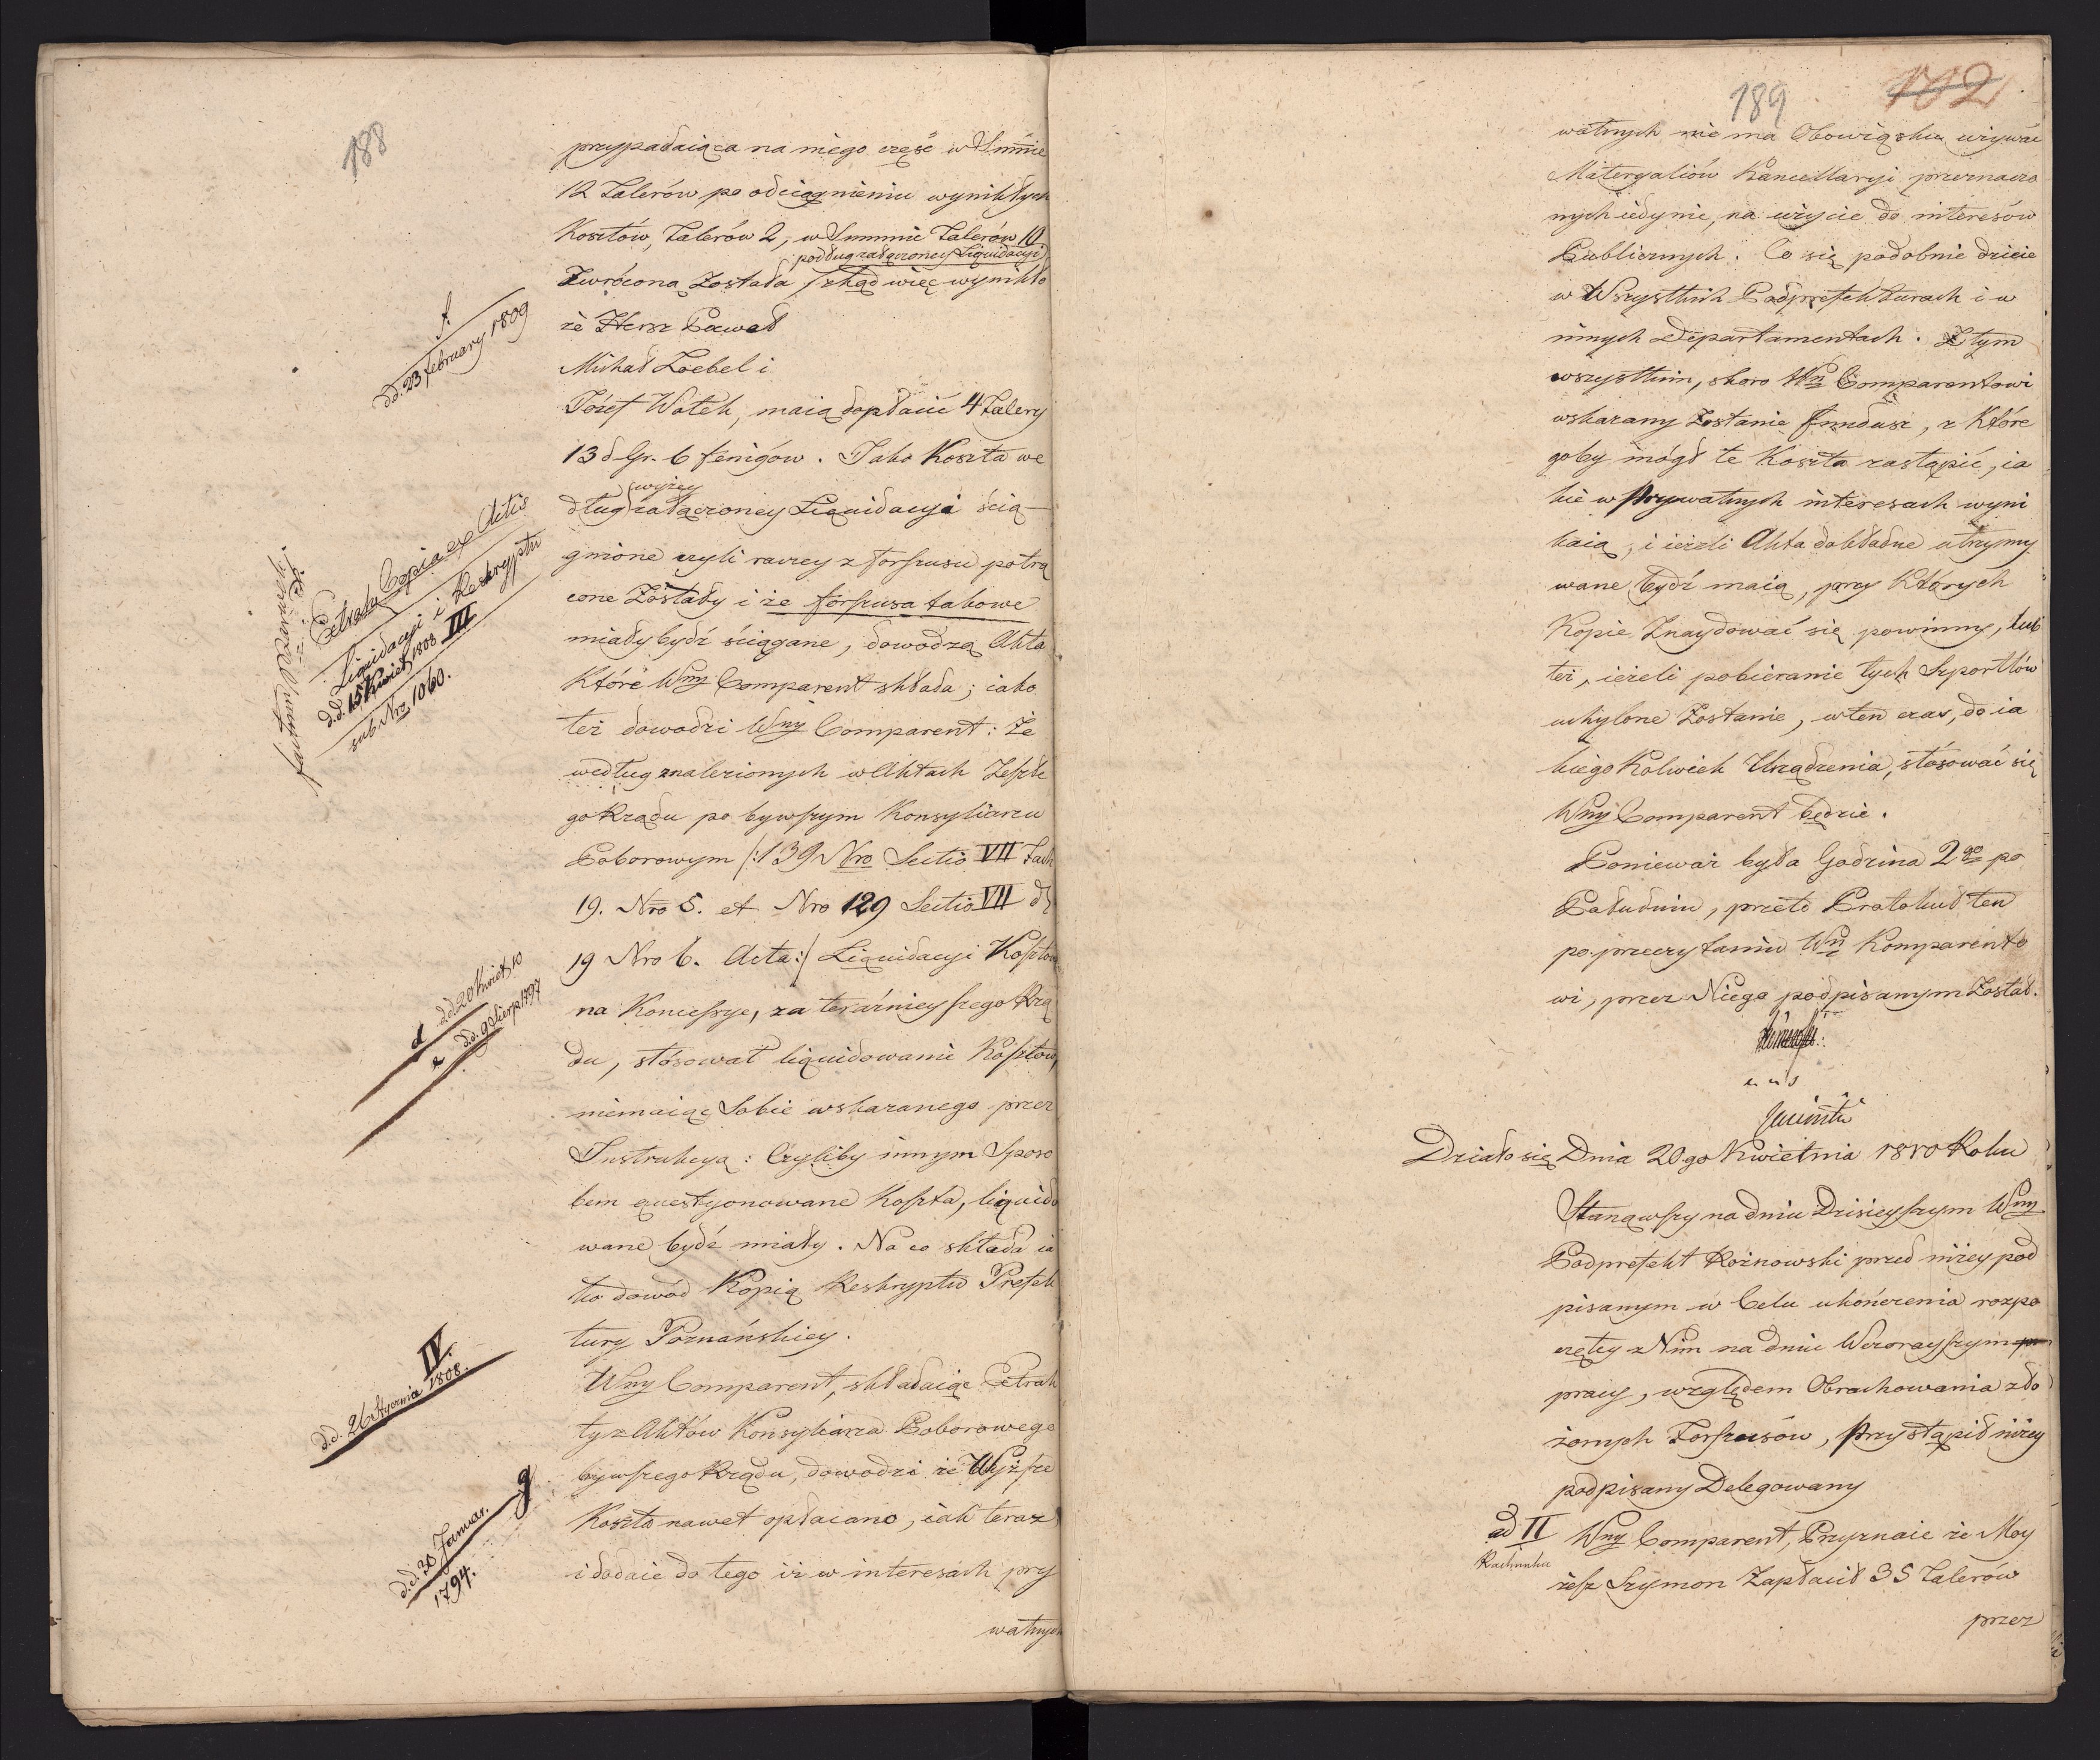 188
przypadaiąca na niego część w Summie
12 Talerów po odciągnieniu wynikłych
Kosztów, Talerów 2, w Summie Talerów 10
podług załączoney Liquidacyi
Zwróconą Została / zkąd więc wynikło
f.
d.d. 23 february 1809
że Hersz Paweł
Michał Loebel i
Józef Wołek, maią dopłacić 4 Talery
13 d Gr. 6 fenigów. Jako Koszta we
wyżey
dług załączoney Liquidacyi ścią-
gnione czyli raczey z forszusu potrą
cone Zostały i że forszusa takowe
miały bydź ściągane, dowodzą Akta
Które Wny Comparent składa; iako
też dowodzi Wny Comparent: że
Extracta Copia ex Actis
Liquidacyi i Reskryptu
d.d. 15 Kwiet. 1808 III
sub Nro 1060.
według znalezionych w Aktach Zeszłe
go Rządu po bywszym Konsyliarzu
Poborowym /: 139 Nro Sectio VII Fach
19. Nro 5. et Nro 129 Sectio VII d
19 Nro 6. Acta :/ Liquidacyi Kosztów
na Koncessye, za teraźnieyszego Rzą
du, stósował liquidowanie Kosztów,
d d.d. 20 Kwiet. 10
e d.d. 9 Sierp. 1797
niemaiąc Sobie wskazanego przez
Instrukcyą: Czyliby innym Sposo
bem questyonowane Koszta, liquido
wane bydź miały. Na co składa ia
ko dowód Kopią Reskryptu Prefek
tury Poznańskiey.
IV.
d.d. 26 Stycznia 1808.
Wny Comparent, składaiąc Extrak
ty z Aktów Konsyliarza Poborowego
bywszego Rządu, dowodzi że Wyższe
Koszta nawet opłacano, iak teraz
i dodaie do tego iż w interesach pry
g
d.d. 30 Januar.
1794.
watnych
189
102
watnych nie ma Obowiązku używać
Materyaliów Kancellaryi przeznaczo
nych iedynie, na użycie do interesów
Publicznych. Co się podobnie dzieie
w Wszystkich Podprefekturach i w
innych Departamentach. Z tym
wszystkim, skoro Wn Comparentowi
wskazany Zostanie fundusz, z Które
goby mógł te Koszta zastąpić, ia
kie w Prywatnych interesach wyni
kaią, i ieżeli Akta dokładne utrzymy
wane bydź maią, przy Których
Kopie Znaydować się powinny, lub
też, ieżeli pobieranie tych Sportlów
uchylone Zostanie, w ten czas, do ia
kiego Kolwiek Urządzenia, stósować się
Wny Comparent będzie.
Ponieważ była Godzina 2go po
Południu, przeto Protokuł ten
po przeczytaniu Wn Komparento
wi, przez Niego podpisanym Został.
u u s
Działo się Dnia 20go Kwietnia 1810 Roku
Stanąwszy na dniu Dzisieyszym Wny
Podprefekt Rożnowski przed niżey pod
pisanym w Celu ukończenia rozpo
czętey z Nim na dniu Wczorayszym
pracy, względem Obrachowania zło
żonych Forszusów, Przystąpił niżey
podpisany Delegowany
ad II
Rachunku
Wny Comparent, Przyznaie że Moy
żesz Szymon Zapłacił 35 Talerów
przez